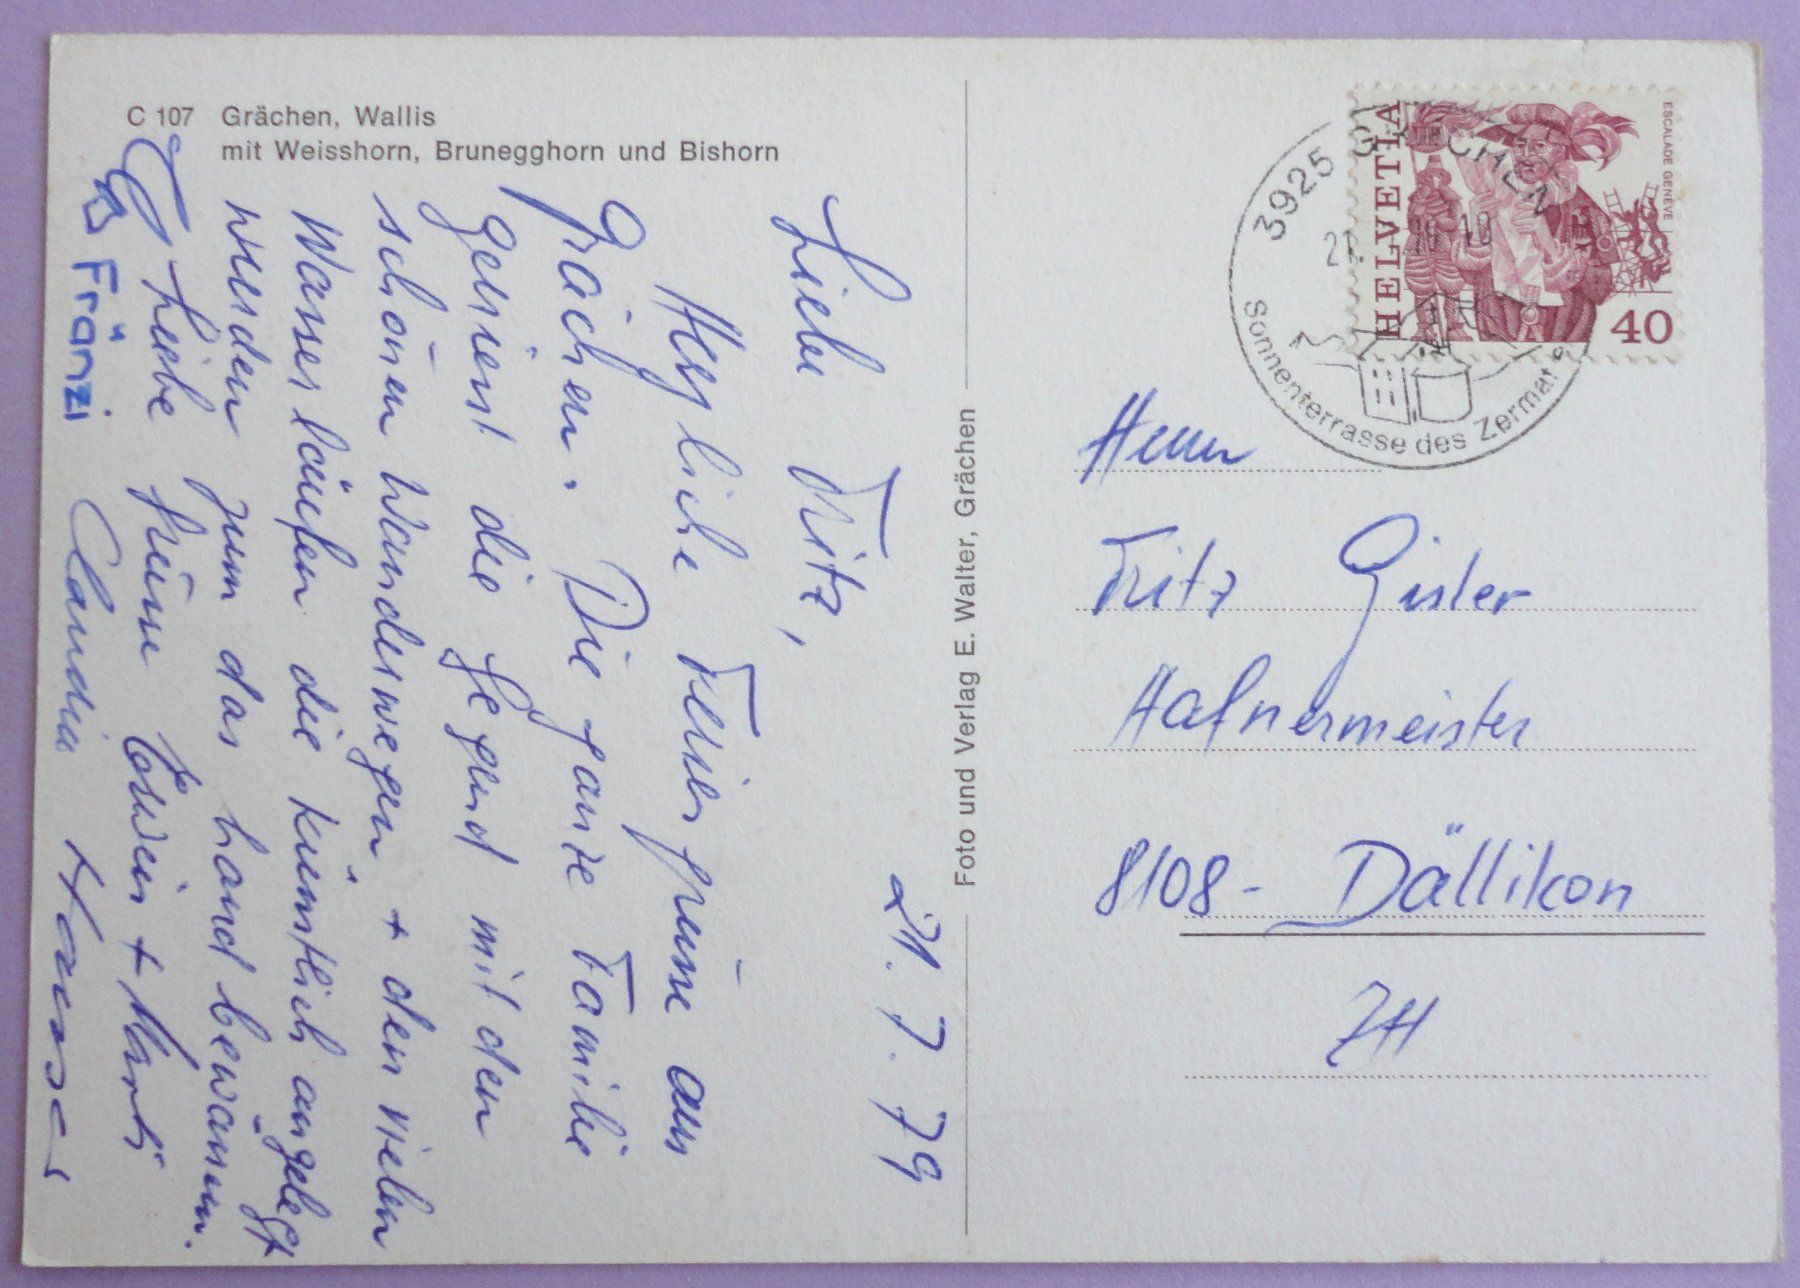 C 107 Grächen, Wallis
mit Weisshorn, Brunegghorn und Bishorn
21. 7. 79
Lieber Fritz,
Herzliche Feriengrüsse aus
Grächen. Die ganze Familie
geniesst die Gegend mit den
schönen Wanderwegen + den vielen
Wasserläufen die künstlich angelegt
wurden zum das Land bewässern.
Liebe Grüsse Erwin +
Fränzi Claudia
Foto und Verlag E. Walter, Grächen
HELVETIA
ESCALADE GENÈVE
40
3925 GRÄCHEN
Sonnenterrasse des
Herrn
Fritz Gisler
Hafnermeister
8108 - Dällikon
ZH